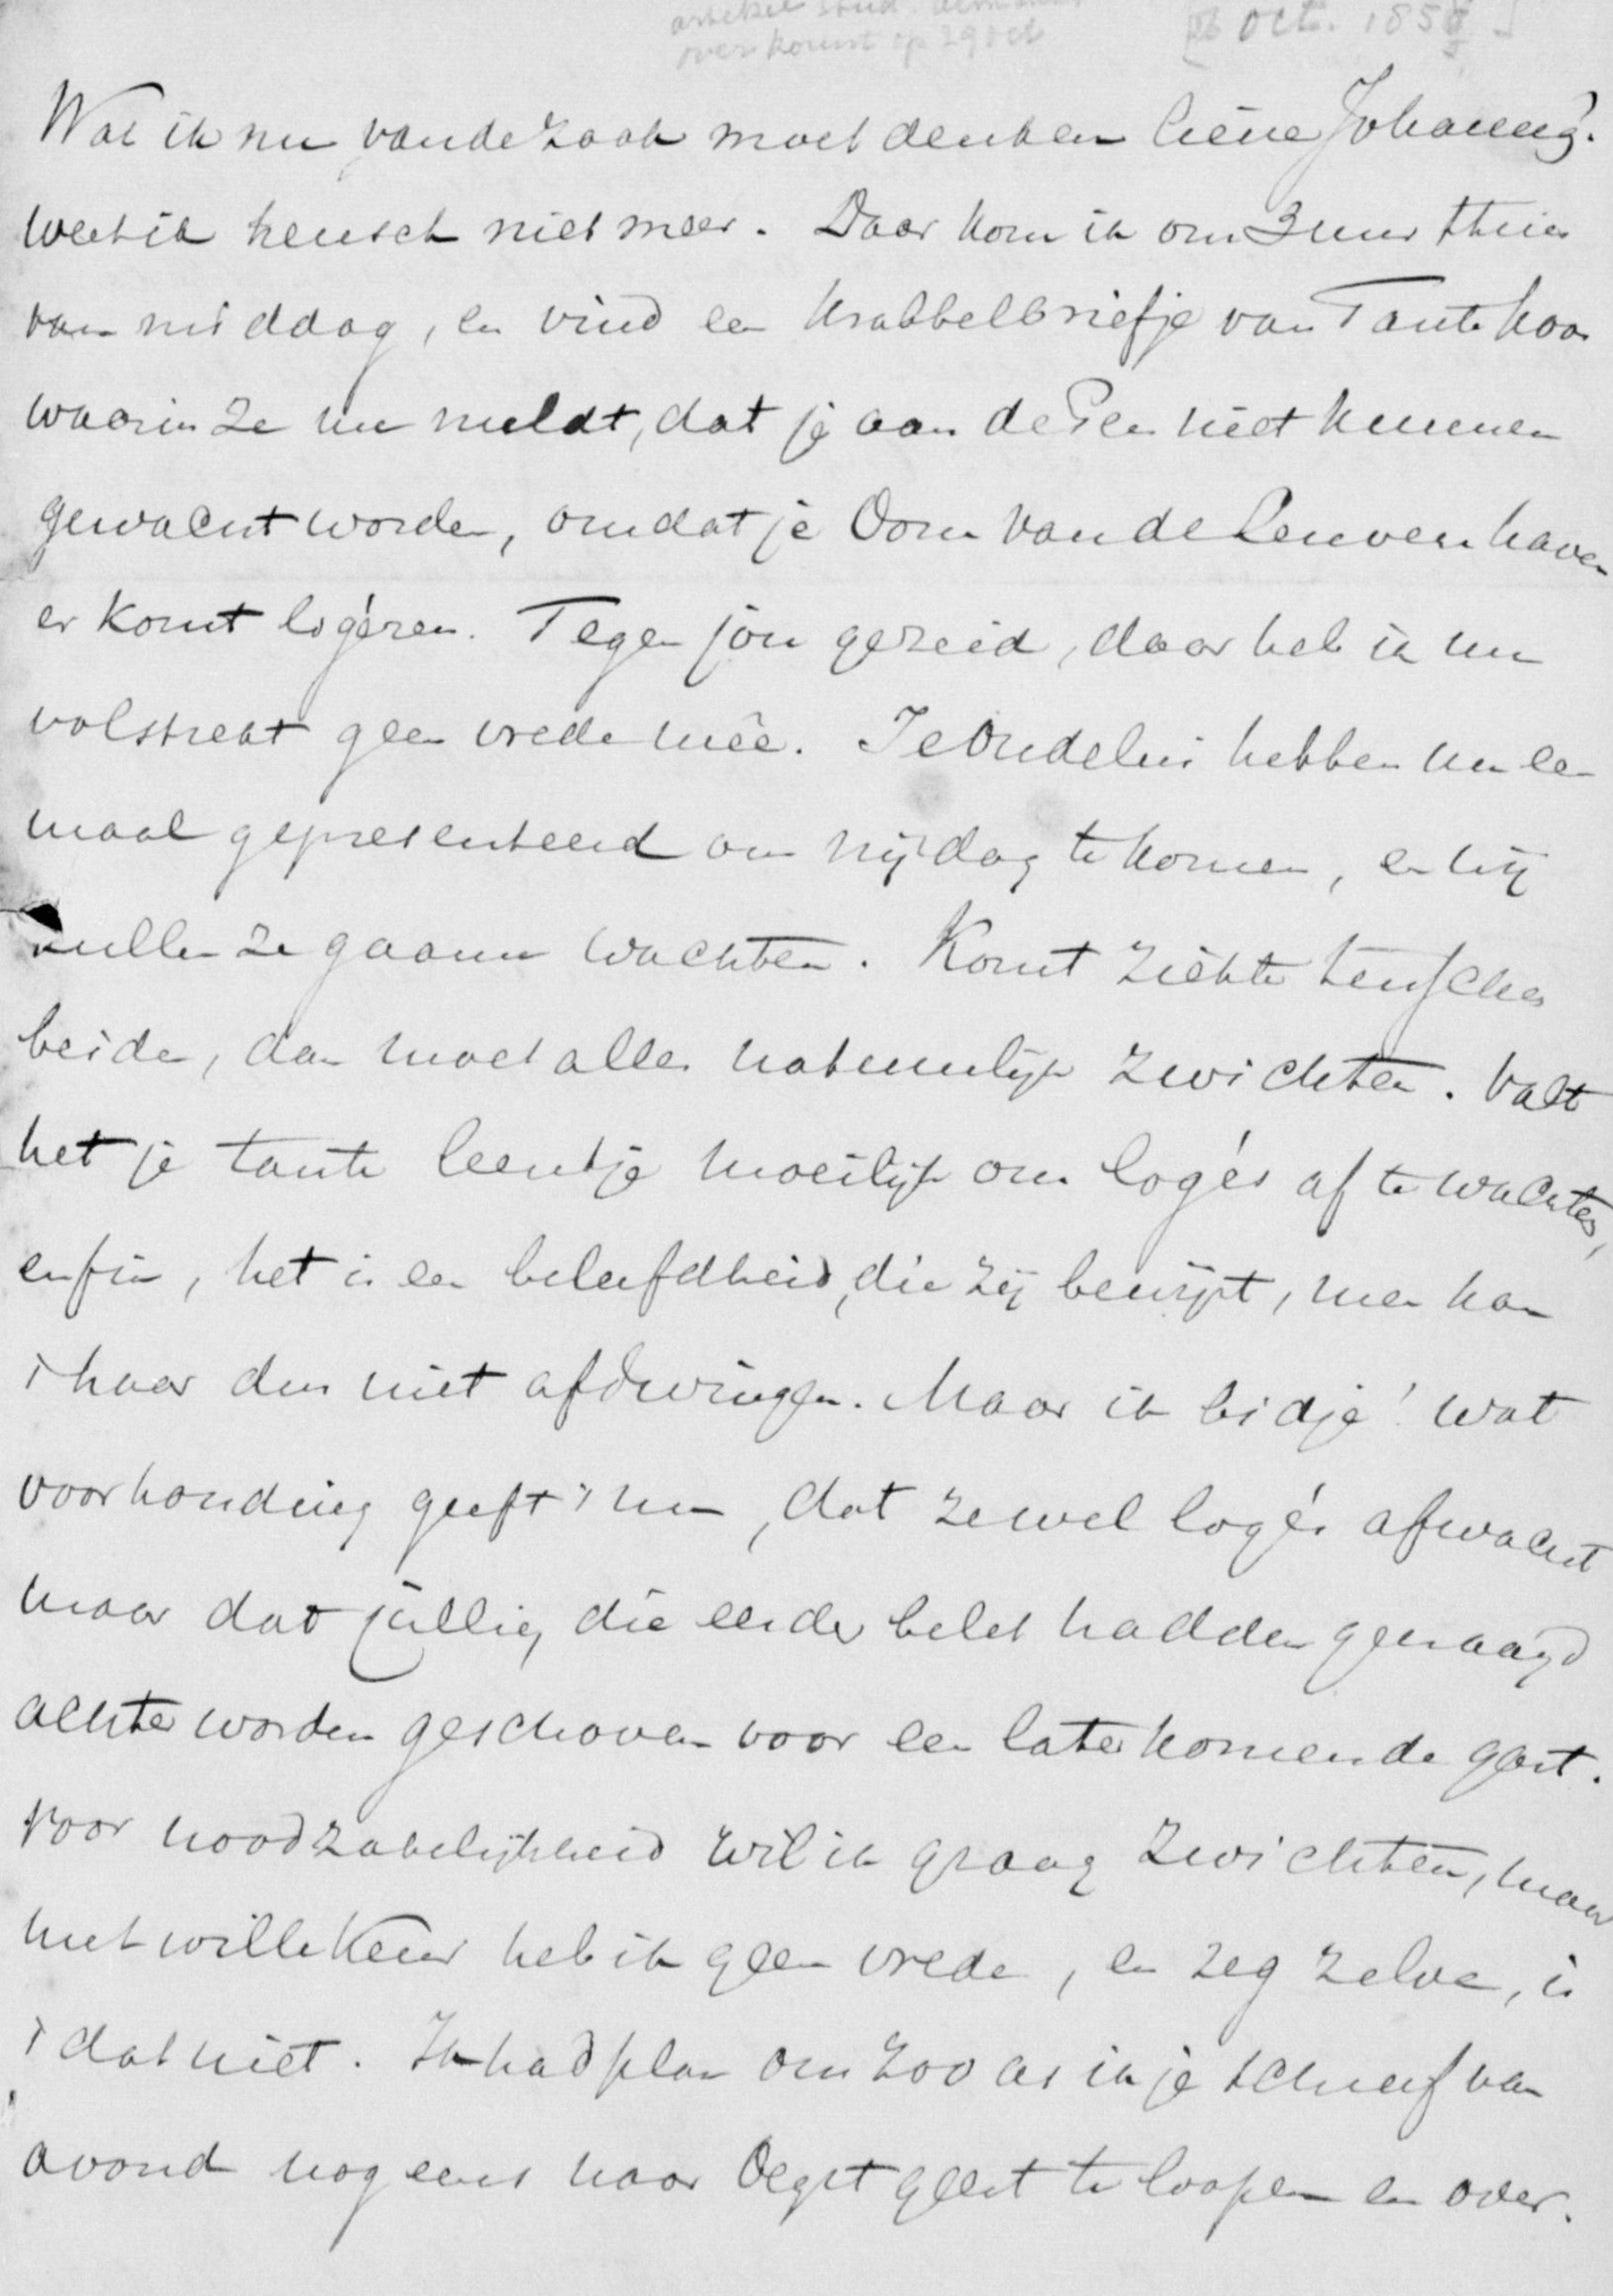 overkomst op 29 oct
[26 oct. 185
Wat ik nu van de zaak moet denken lieve Johanna!
weet ik heusch niet meer. Daar kom ik om 3 uur thuis
van middag, en vind een krabbelbriefje van Tante Koos
waarin ze me meldt, dat je aan de Pen niet kunnen
gewacht worden, omdat je Oom van de Leuvenhaven
er komt logéren. Tegen jou gezeid, daar heb ik nu
volstrekt geen vrede meê. Je Oudelui hebben nu een
maal gepresenteerd om vrijdag te komen, en wij
zullen ze gaarne wachten. Komt ziekte tusschen
beide, dan moet alles natuurlijk zwichten. Valt
het je tante Leentje moeilijk om logés af te wachten,
enfin, het is een beleefdheid, die zij bewijst, men kan
't haar dus niet afdwingen. Maar ik bid je! wat
voor houding geeft 't nu, dat ze wel logés afwacht
maar dat jullie, die eerder belet hadden gevraagd
achter worden geschoven voor een later komende gast.
Voor noodzakelijkheid wil ik graag zwichten, maar
met willekeur heb ik geen vrede, en zeg zelve, is
't dat niet. Ik had plan om zoo als ik je schreef van
avond nog eens naar Oegstgeest te loopen en over.